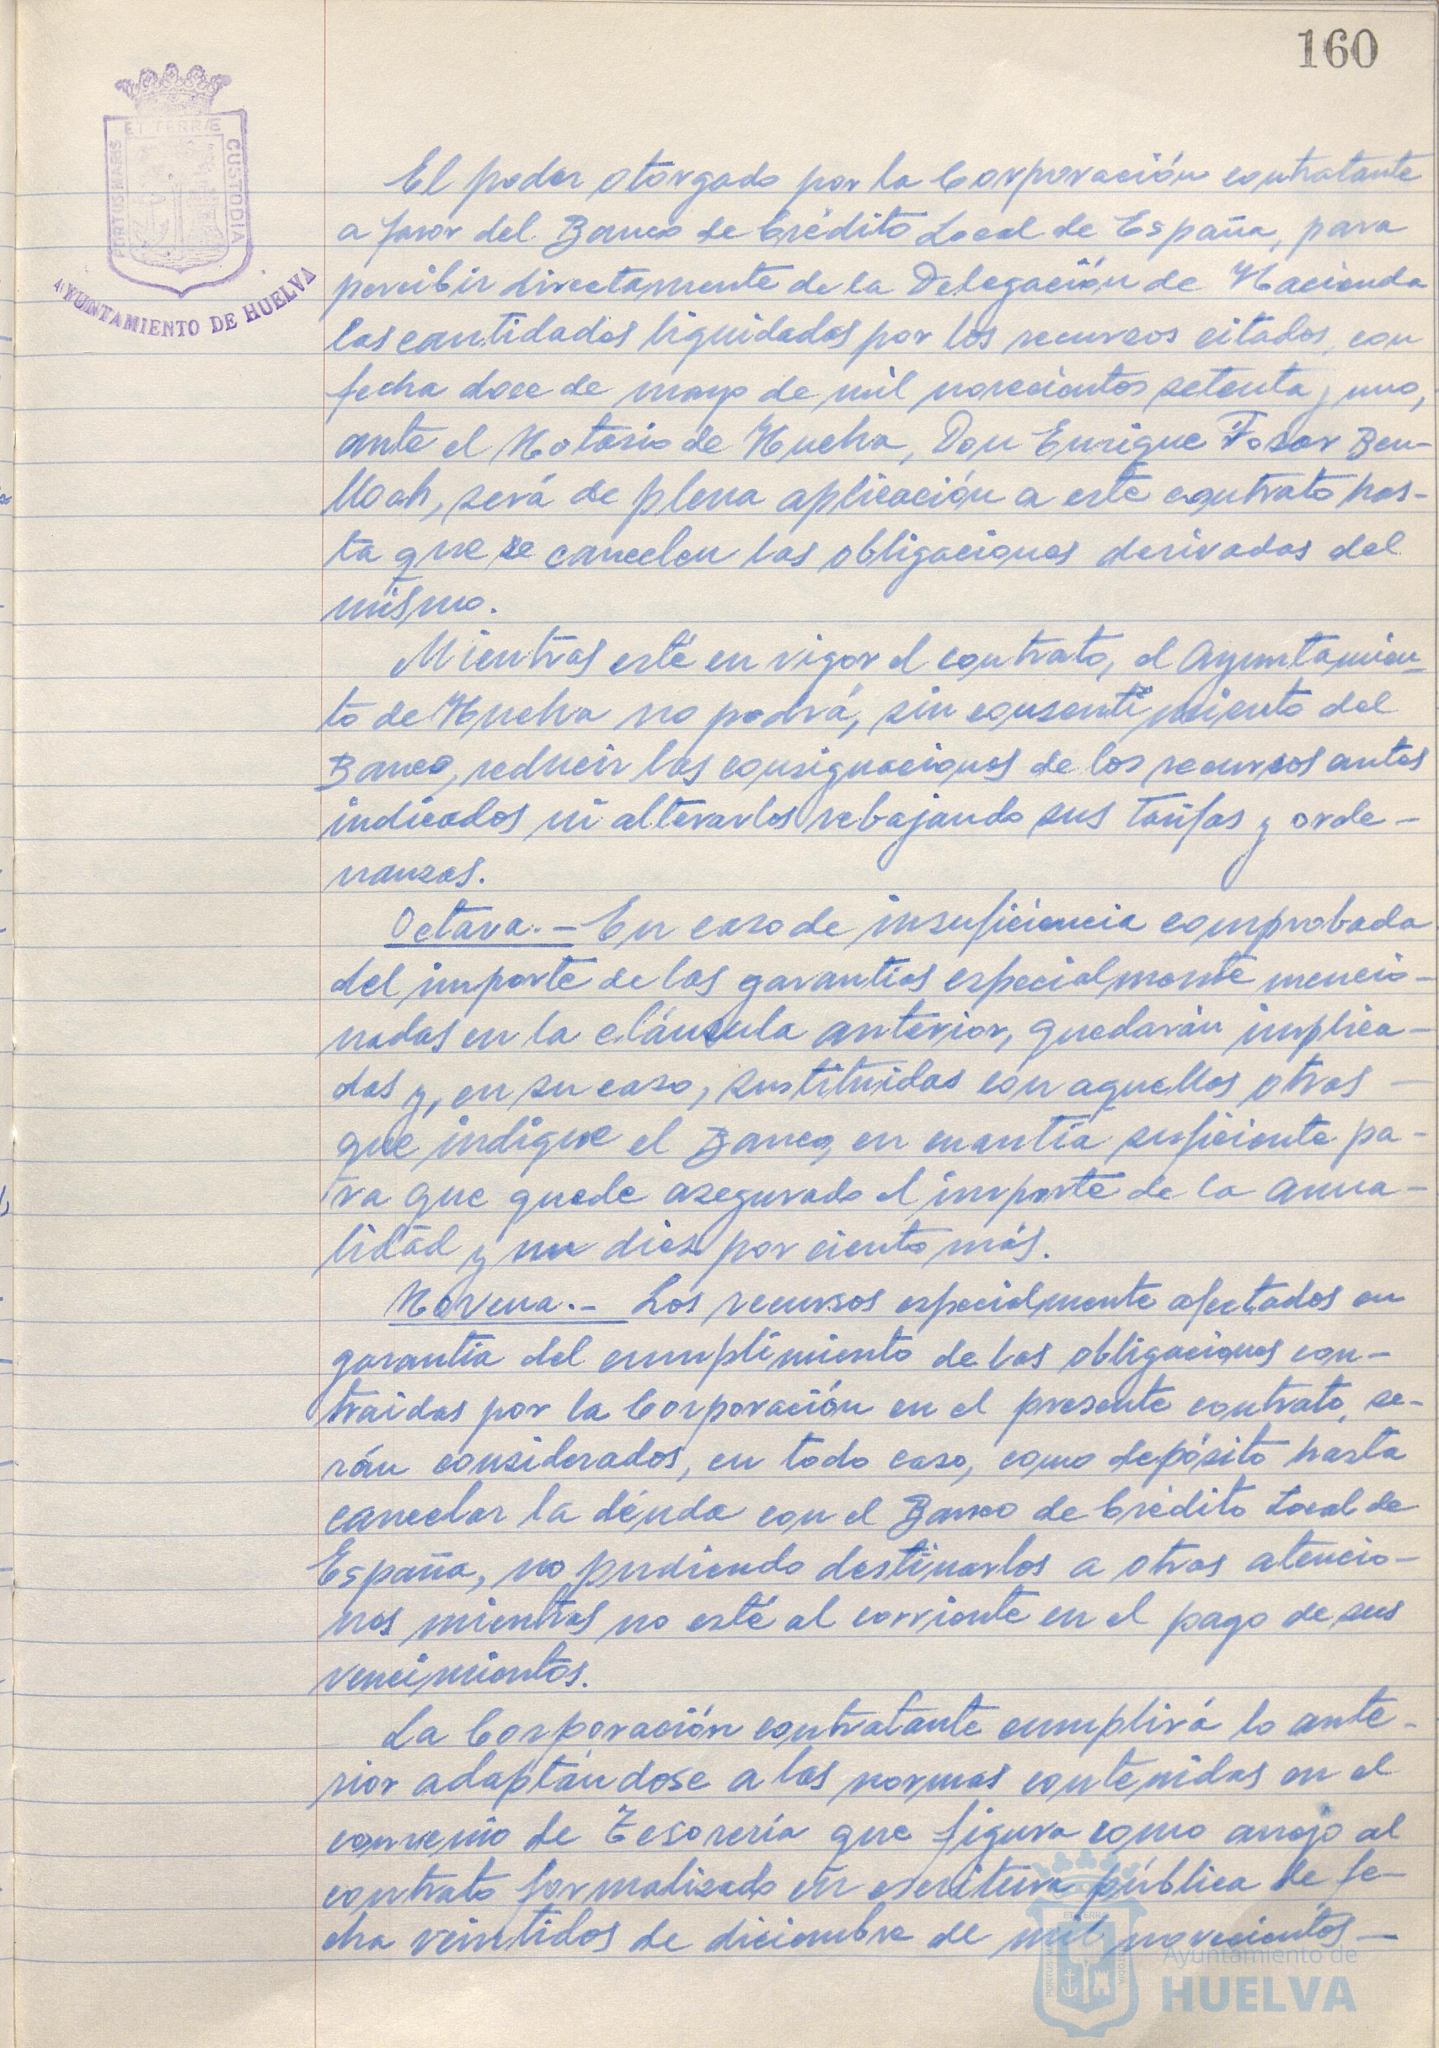 160
PORTUS MARIS ET TERRÆ CUSTODIA
AYUNTAMIENTO DE HUELVA
El poder otorgado por la Corporación contratante
a favor del Banco de Crédito Local de España, para
percibir directamente de la Delegación de Hacienda
las cantidades liquidadas por los recursos citados, con
fecha doce de mayo de mil novecientos setenta y uno,
ante el Notario de Huelva, Don Enrique Fosar Ben-
lloch, será de plena aplicación a este contrato has-
ta que se cancelen las obligaciones derivadas del
mismo.
Mientras esté en vigor el contrato, el Ayuntamien-
to de Huelva no podrá, sin consentimiento del
Banco, reducir las consignaciones de los recursos antes
indicados ni alterarlos rebajando sus tarifas y orde-
nanzas.
Octava.- En caso de insuficiencia comprobada
del importe de las garantías especialmente mencio-
nadas en la cláusula anterior, quedarán implica-
das y, en su caso, sustituidas con aquellas otras
que indique el Banco, en cuantía suficiente pa-
ra que quede asegurado el importe de la anua-
lidad y un diez por ciento más.
Novena.- Los recursos especialmente afectados en
garantía del cumplimiento de las obligaciones con-
traidas por la Corporación en el presente contrato, se-
rán considerados, en todo caso, como depósito hasta
cancelar la déuda con el Banco de Crédito Local de
España, no pudiendo destinarlos a otras atencio-
nes mientras no esté al corriente en el pago de sus
vencimientos.
La Corporación contratante cumplirá lo ante-
rior adaptándose a las normas contenidas en el
convenio de Tesorería que figura como anejo al
contrato formalizado en escritura pública de fe-
cha veintidos de diciembre de mil novecientos
Ayuntamiento de
HUELVA